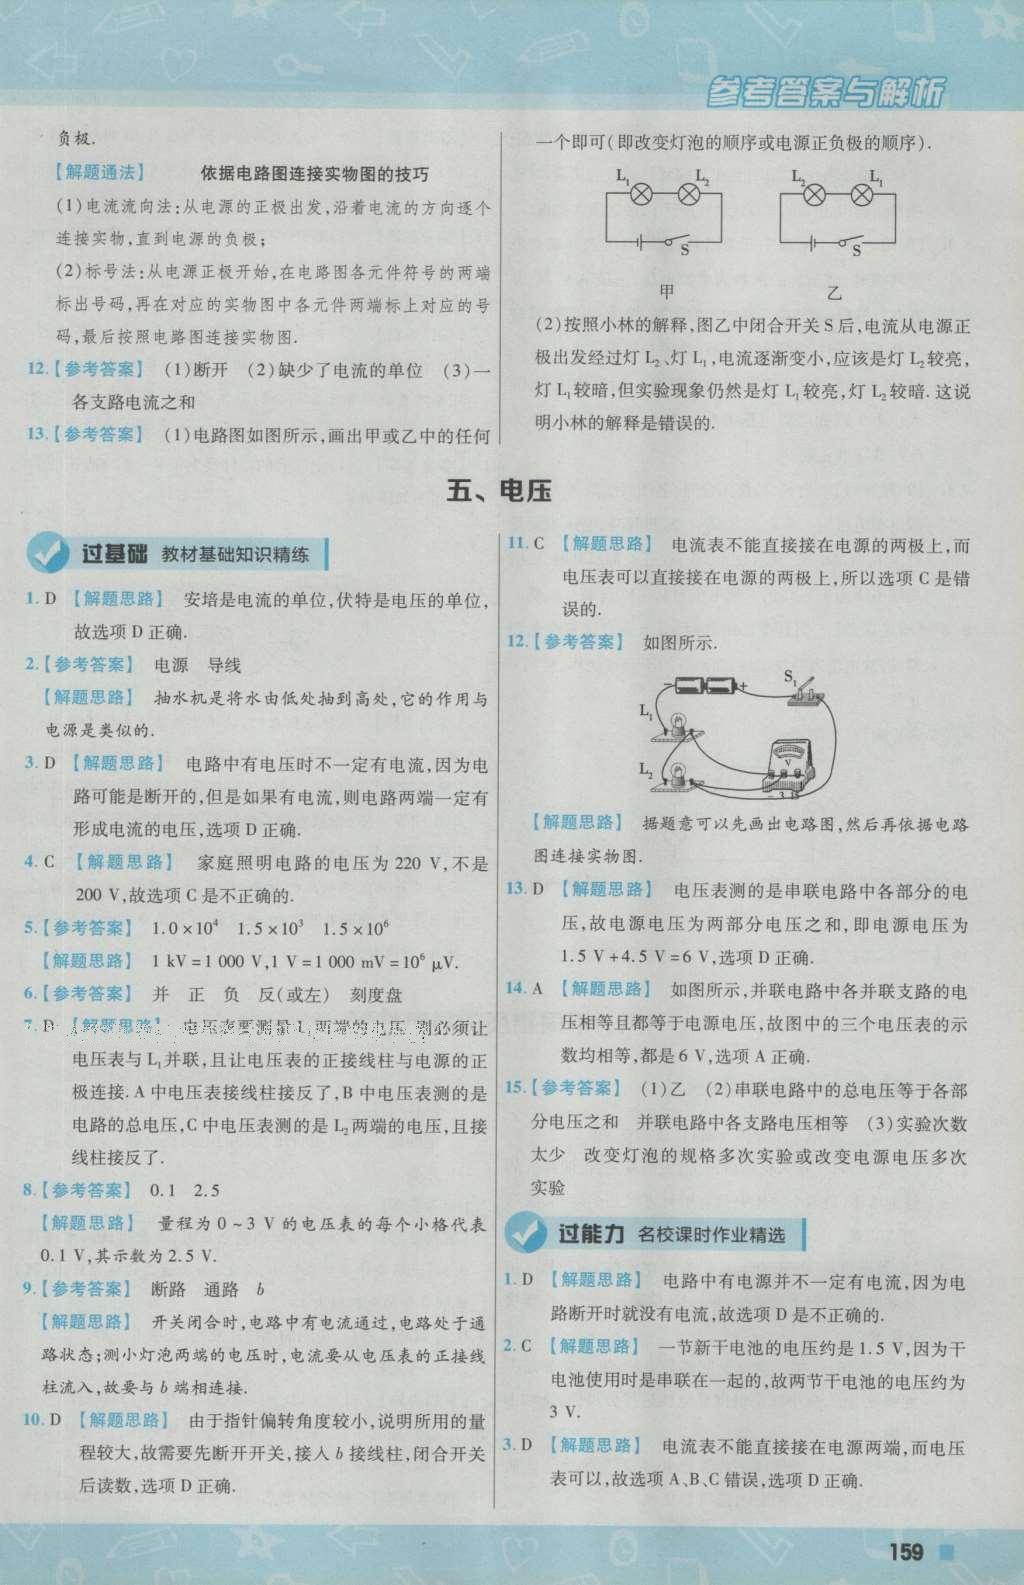 参考答案与解析
负极.
【解题通法】 依据电路图连接实物图的技巧
(1)电流流向法:从电源的正极出发,沿着电流的方向逐个
连接实物,直到电源的负极;
(2)标号法:从电源正极开始,在电路图各元件符号的两端
标出号码,再在对应的实物图中各元件两端标上对应的号
码,最后按照电路图连接实物图.
12.【参考答案】 (1)断开 (2)缺少了电流的单位 (3)一
各支路电流之和
13.【参考答案】 (1)电路图如图所示,画出甲或乙中的任何
一个即可(即改变灯泡的顺序或电源正负极的顺序).
L₁ L₂ L₂ L₁
S S
甲 乙
(2)按照小林的解释,图乙中闭合开关 S 后,电流从电源正
极出发经过灯 L₂、灯 L₁,电流逐渐变小,应该是灯 L₂较亮,
灯 L₁较暗,但实验现象仍然是灯 L₁较亮,灯 L₂较暗. 这说
明小林的解释是错误的.
五、电压
过基础 教材基础知识精练
1. D 【解题思路】 安培是电流的单位,伏特是电压的单位,
故选项 D 正确.
2.【参考答案】 电源 导线
【解题思路】 抽水机是将水由低处抽到高处,它的作用与
电源是类似的.
3. D 【解题思路】 电路中有电压时不一定有电流,因为电
路可能是断开的,但是如果有电流,则电路两端一定有
形成电流的电压,选项 D 正确.
4. C 【解题思路】 家庭照明电路的电压为 220 V,不是
200 V,故选项 C 是不正确的.
5.【参考答案】 1.0×10⁴ 1.5×10³ 1.5×10⁶
【解题思路】 1 kV=1 000 V,1 V=1 000 mV=10⁶ μV.
6.【参考答案】 并 正 负 反(或左) 刻度盘
7. D 【解题思路】 电压表要测量 L₁两端的电压,则必须让
电压表与 L₁并联,且让电压表的正接线柱与电源的正
极连接. A 中电压表接线柱接反了,B 中电压表测的是
电路的总电压,C 中电压表测的是 L₂两端的电压,且接
线柱接反了.
8.【参考答案】 0.1 2.5
【解题思路】 量程为 0~3 V 的电压表的每个小格代表
0.1 V,其示数为 2.5 V.
9.【参考答案】 断路 通路 b
【解题思路】 开关闭合时,电路中有电流通过,电路处于通
路状态;测小灯泡两端的电压时,电流要从电压表的正接线
柱流入,故要与 b 端相连接.
10. D 【解题思路】 由于指针偏转角度较小,说明所用的量
程较大,故需要先断开开关,接入 b 接线柱,闭合开关
后读数,选项 D 正确.
11. C 【解题思路】 电流表不能直接接在电源的两极上,而
电压表可以直接接在电源的两极上,所以选项 C 是错
误的.
12.【参考答案】 如图所示.
− + S₁
L₁
V
L₂
− 3 15
【解题思路】 据题意可以先画出电路图,然后再依据电路
图连接实物图.
13. D 【解题思路】 电压表测的是串联电路中各部分的电
压,故电源电压为两部分电压之和,即电源电压为
1.5 V+4.5 V=6 V,选项 D 正确.
14. A 【解题思路】 如图所示,并联电路中各并联支路的电
压相等且都等于电源电压,故图中的三个电压表的示
数均相等,都是 6 V,选项 A 正确.
15.【参考答案】 (1)乙 (2)串联电路中的总电压等于各部
分电压之和 并联电路中各支路电压相等 (3)实验次数
太少 改变灯泡的规格多次实验或改变电源电压多次
实验
过能力 名校课时作业精选
1. D 【解题思路】 电路中有电源并不一定有电流,因为电
路断开时就没有电流,故选项 D 是不正确的.
2. C 【解题思路】 一节新干电池的电压约是 1.5 V,因为干
电池使用时是串联在一起的,故两节干电池的电压约为
3 V.
3. D 【解题思路】 电流表不能直接接在电源两端,而电压
表可以,故选项 A、B、C 错误,选项 D 正确.
159